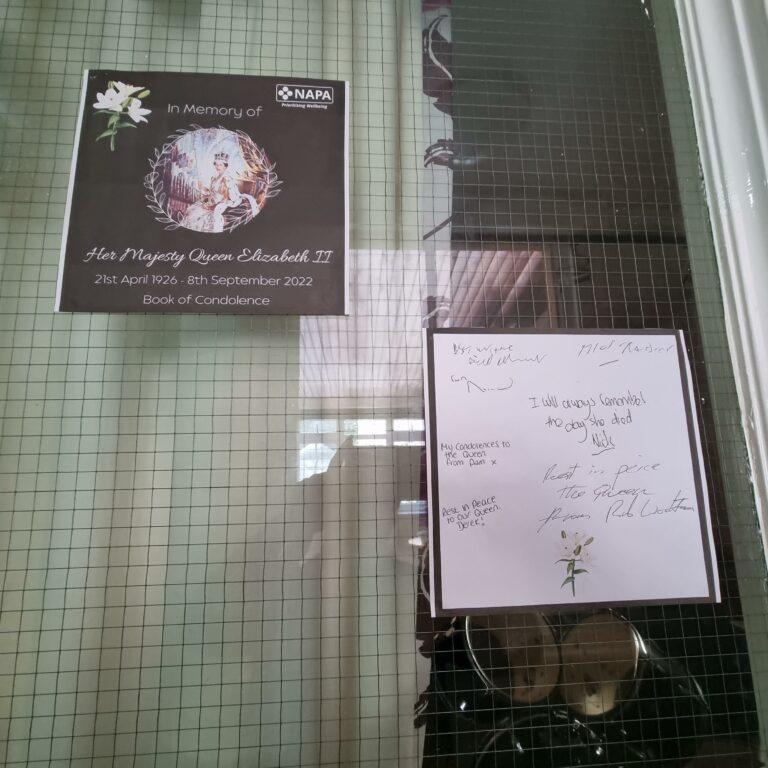 NAPA
Prioritising Wellbeing
In Memory of
Her Majesty Queen Elizabeth II
21st April 1926 - 8th September 2022
Book of Condolence
I will always remember
the day she died
Nick
My Condorences to
the Queen
from Pam x
Rest in peice
The Queen
Rest in Peace
to our Queen.
Derek!